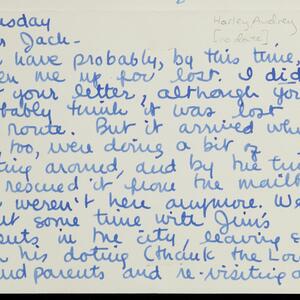 usday
Harley Audrey
[no date]
r Jack-
have probably, by this time,
en me up for lost. I did
t your letter, although you
bably think it was lost
route. But it arrived whi
, too, were doing a bit of
ting around, and by the tim
rescued it from the mailb
weren't here anymore. We
nt some time with Jim's
ents in the city, leaving s
h his doting (thank the Lor
ndparents and re-visiting a